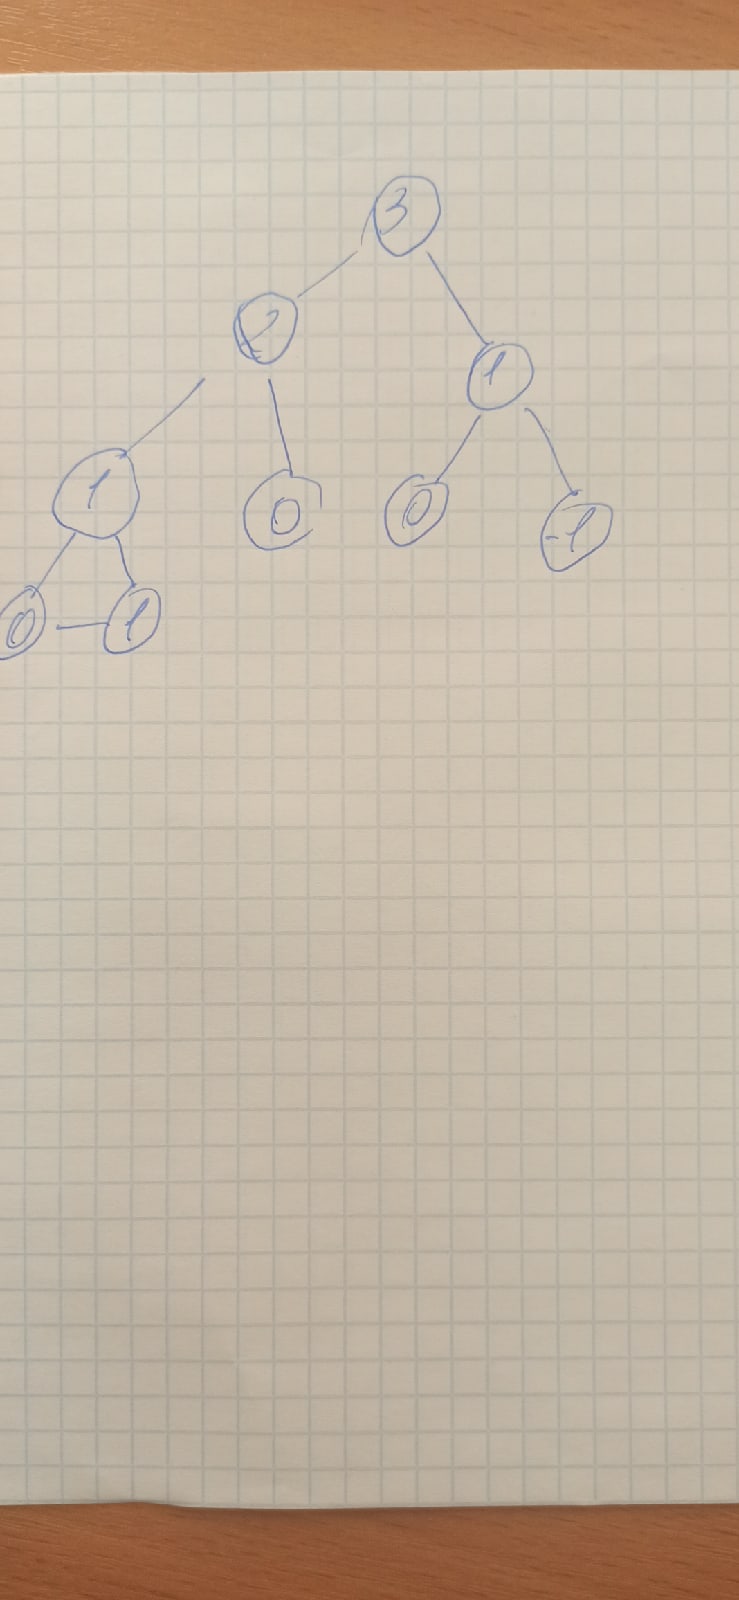 3
2
1
1
0
0
-1
0 - 1